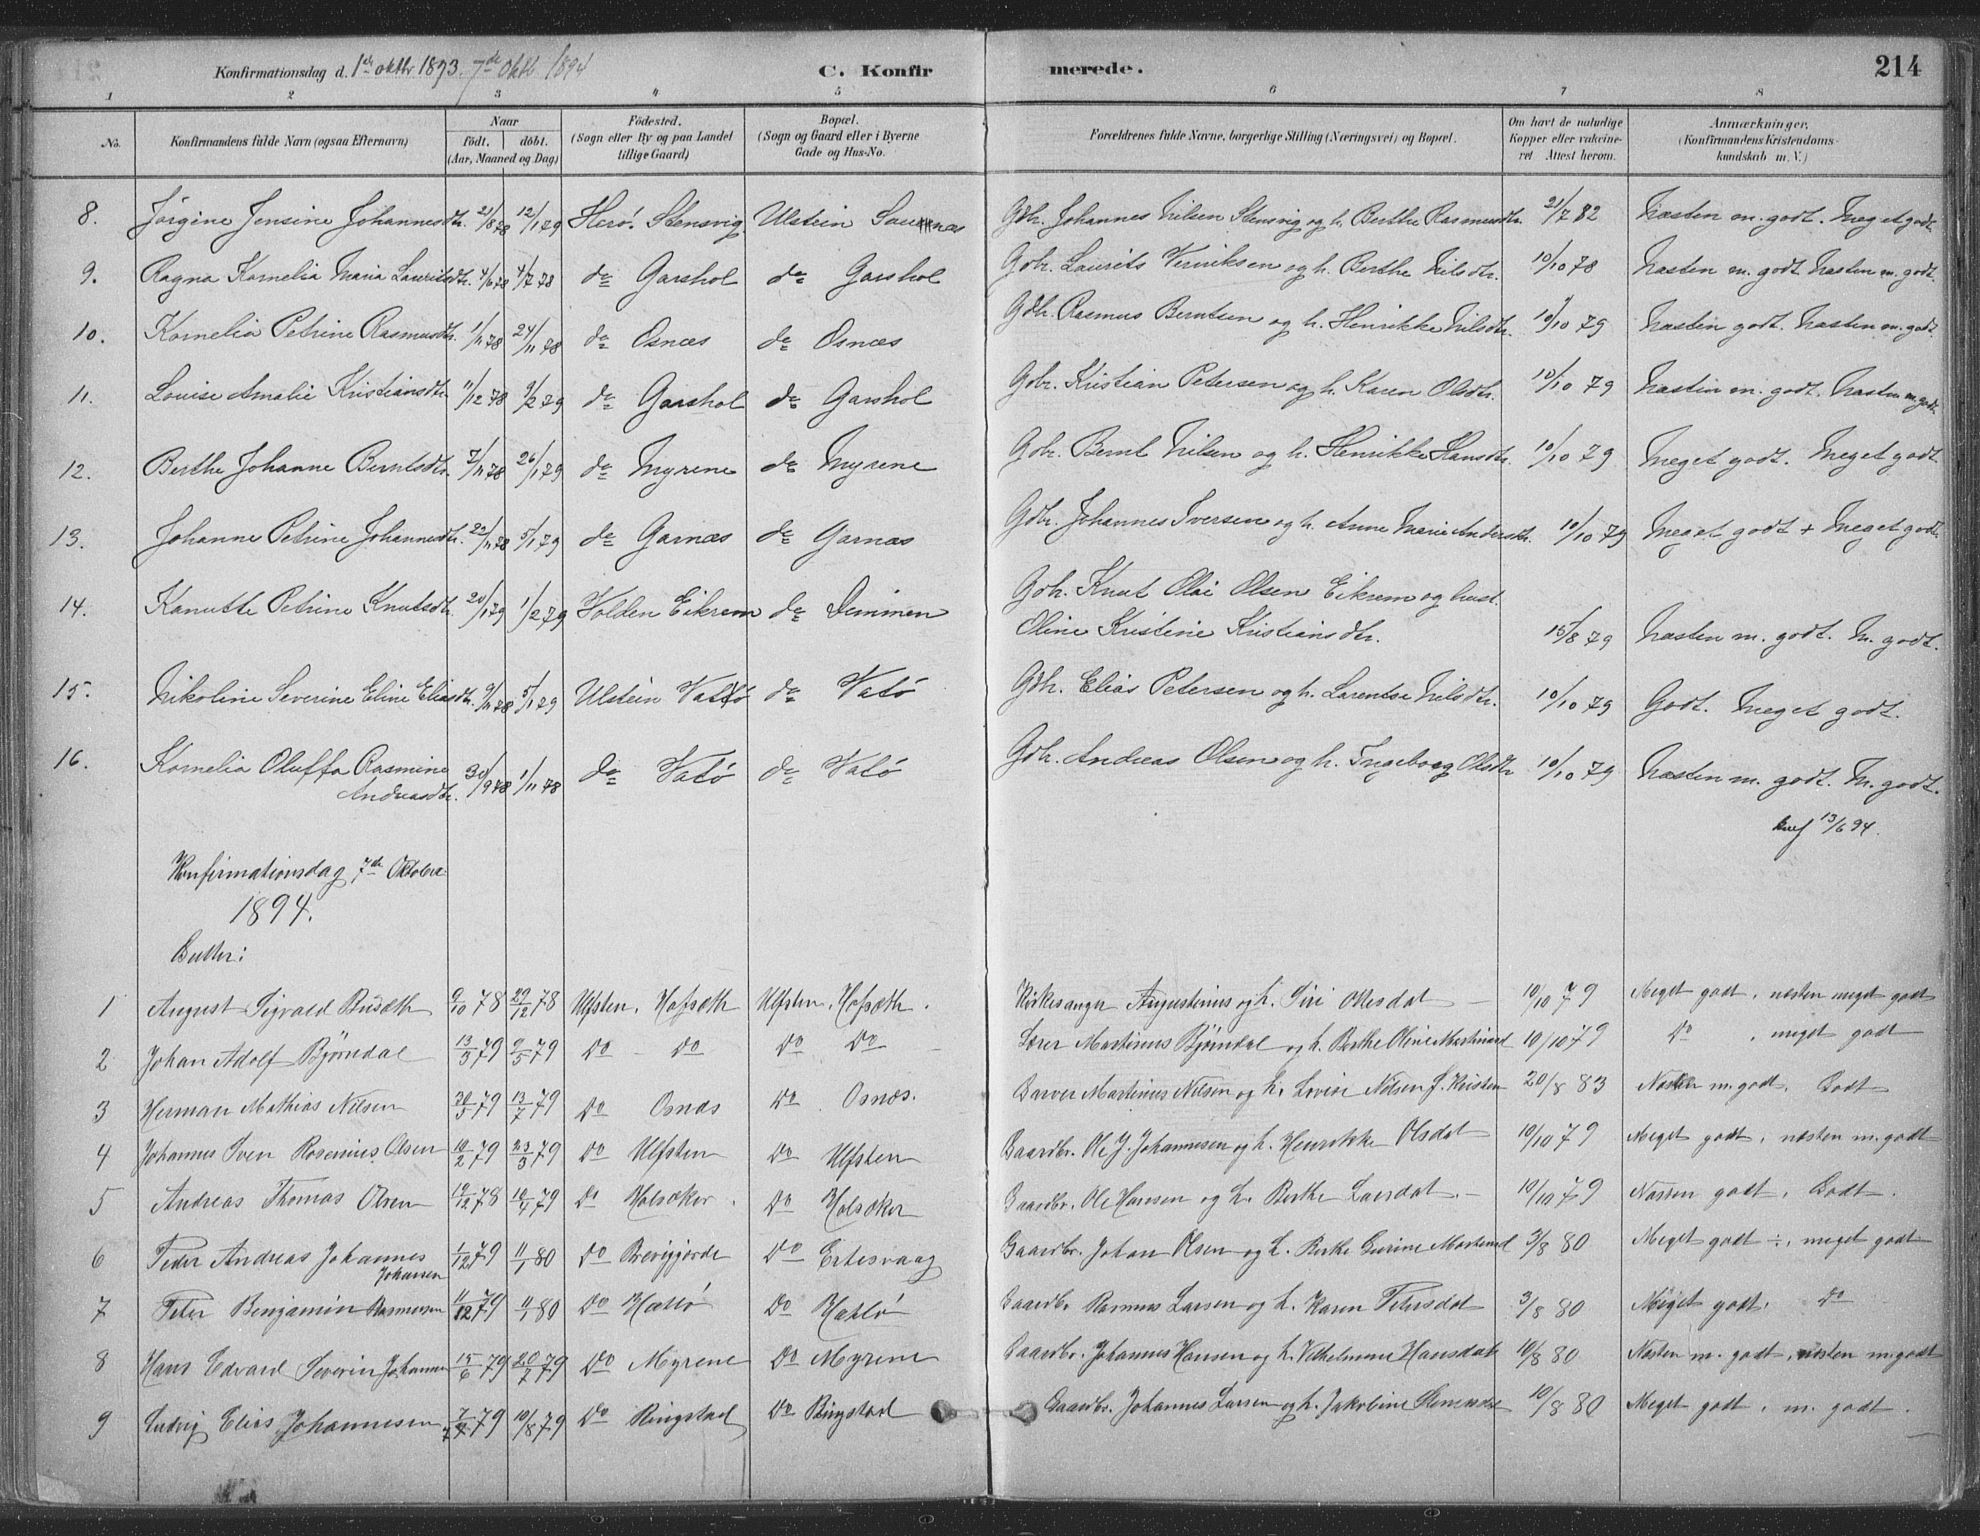 Konfirmationsdag d. 1ste oktbr 1893. 7de Oktb 1894 C. Konfirmerede. 214
1 2 3 4 5 6 7 8
No. Konfirmandens fulde Navn (ogsaa Efternavn) Naar født, døbt. (Aar, Maaned og Dag) Fødested. (Sogn eller By og paa Landet tillige Gaard) Bopæl. (Sogn og Gaard eller i Byerne Gade og Hus-No. Forældrenes fulde Navne, borgerlige Stilling (Næringsvei) og Bopæl. Om havt de naturlige Kopper eller vakcineret Attest herom. Anmærkninger, (Konfirmandens Kristendomskundskab m. V.)
8. Jørgine Jensine Johannesdtr. 21/8 78 12/1 79 Herö. Stensvig Ulstein Gdbr. Johannes Nilsen Stensvig og h. Berthe Rasmusdtr. 21/7 82 Næsten m. godt. Meget godt.
9. Ragna Kornelia Maria Lauritsdtr. 4/6 78 4/7 78 do Garshol do Garshol Gdbr. Laurits Henriksen og h. Berthe Nilsdtr. 10/10 78 Næsten m. godt. Næsten m. godt.
10. Kornelia Petrine Rasmusdtr. 1/11 78 24/11 78 do Osnæs do Osnæs Gdbr. Rasmus Berntsen og h. Henrikke Nilsdtr. 10/10 79 Næsten godt. Næsten m. godt.
11. Louise Amalie Kristiansdtr. 11/12 78 9/2 79 do Garshol do Garshol Gdbr. Kristian Petersen og h. Karen Olsdtr. 10/10 79 Næsten m. godt. Næsten m. godt.
12. Berthe Johanne Berntsdtr. 7/11 78 26/1 79 do Myrene do Myrene Gdbr. Bernt Nilsen og h. Henrikke Hansdtr. 10/10 79 Meget godt. Meget godt.
13. Johanne Petrine Johannesdtr. 22/11 78 5/1 79 do Garnæs do Garnæs Gdbr. Johannes Iversen og h. Anne Marie Andersdtr. 10/10 79 Meget godt + Meget godt.
14. Kanutte Petrine Knutsdtr. 20/1 79 1/2 79 Volden Eikrem do Dimmen Gdbr. Knut Olai Olsen Eikrem og hust.
Oline Kristine Kristiansdtr. 15/8 79 Næsten m. godt. M. godt.
15. Nikoline Severine Eline Eliasdtr. 9/11 78 5/1 79 Ulstein Vatö do Vatö Gdbr. Elias Petersen og h. Larentse Nilsdtr. 10/10 79 Godt. Meget godt.
16. Kornelia Oluffa Rasmine
Andreasdtr. 30/9 78 1/11 78 do Vatö do Vatö Gdbr. Andreas Olsen og h. Ingeborg Olsdtr 10/10 79 Næsten m. godt. M. godt.
13/6 94.
Konfirmationsdag 7de Oktober
1894.
Gutter:
1 August Sigvald Busæth 9/10 78 29/12 78 Ulfsten. Hofsæth Ulfsten. Hofsæth. Kirkesanger Augustinus og h. Siri Olesdat 10/10 79 Meget godt, næsten meget godt
2 Johan Adolf Bjørndal 13/3 79 9/5 79 Do Do Do Do Lærer Martinus Bjørndal og h. Berthe Oline Martinsd 10/10 79 Do, meget godt
3 Herman Mathias Nilsen 30/5 79 13/7 79 Do Osnæs Do Osnæs. Garver Martinus Nilsen og h. Lovise Nilsen f. Kristen 20/8 83 Næsten m. godt, Godt
4 Johannes Sven Rosenius Olsen 10/2 79 23/3 79 Do Ulfsten Do Ulfsten Gaardbr. Ole J. Johannesen og h. Henrikke Olsdat 10/10 79 Meget godt, næsten m. godt
5 Andreas Thomas Olsen 19/12 78 10/4 79 Do Holsæker. Do Holsæker Gaardbr. Ole Hansen og h. Berthe Larsdat. 10/10 79 Næsten godt, Godt.
6 Peder Andreas Johannes
Johansen 1/12 79 11/1 80 Do Do Ertesvaag Gaardbr. Johan Olsen og h. Berthe Gurine Martinsd 3/8 80 Meget godt ÷, meget godt
7 Peter Benjamin Rasmussen 11/12 79 11/1 80 Do Hatlö Do Hatlö Gaardbr Rasmus Larsen og h. Karen Petersdat 3/8 80 Meget godt, Do
8 Hans Edvard Severin Johannes 15/6 79 20/7 79 Do Myrene Do Myrene Gaardbr. Johannes Hansen og h. Vilhelmine Hansdat 10/8 80 Næsten m. godt, næsten m. godt
9 Ludvig Elias Johannesen 79 10/8 79 Do Ringstad Do Ringstad Gaardbr. Johannes Larsen og h. Jakobine 10/8 80 Meget godt, m. godt.